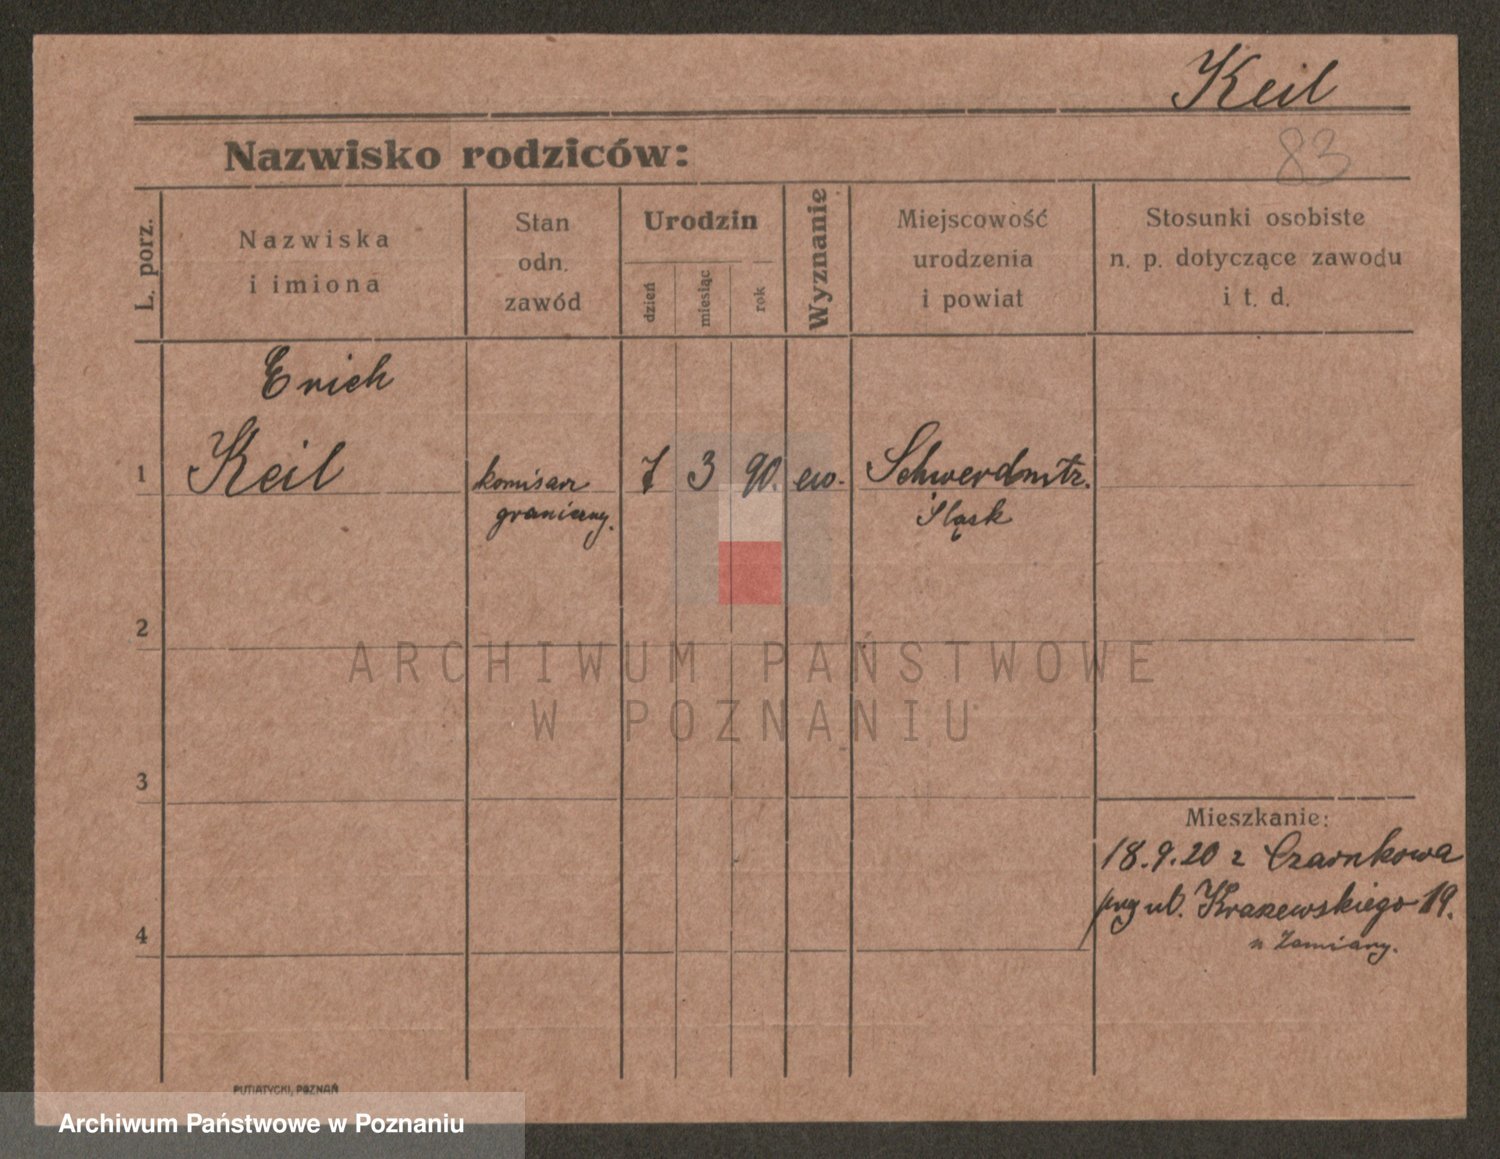 Keil
83
Nazwisko rodziców:
L. porz.
Nazwiska
i imiona
Stan
odn.
zawód
Urodzin
dzień
miesiąc
rok
Wyznanie
Miejscowość
urodzenia
i powiat
Stosunki osobiste
n. p. dotyczące zawodu
i t. d.
Erich
1 Keil komisarz 7 3 90. ew.
graniczny. Śląsk
2
ARCHIWUM PAŃSTWOWE
W POZNANIU
3
Mieszkanie:
18.9.20 z Czarnkowa
ul. Kraszewskiego 19.
4
u Zamiany.
PUTIATYCKI, POZNAŃ
Archiwum Państwowe w Poznaniu